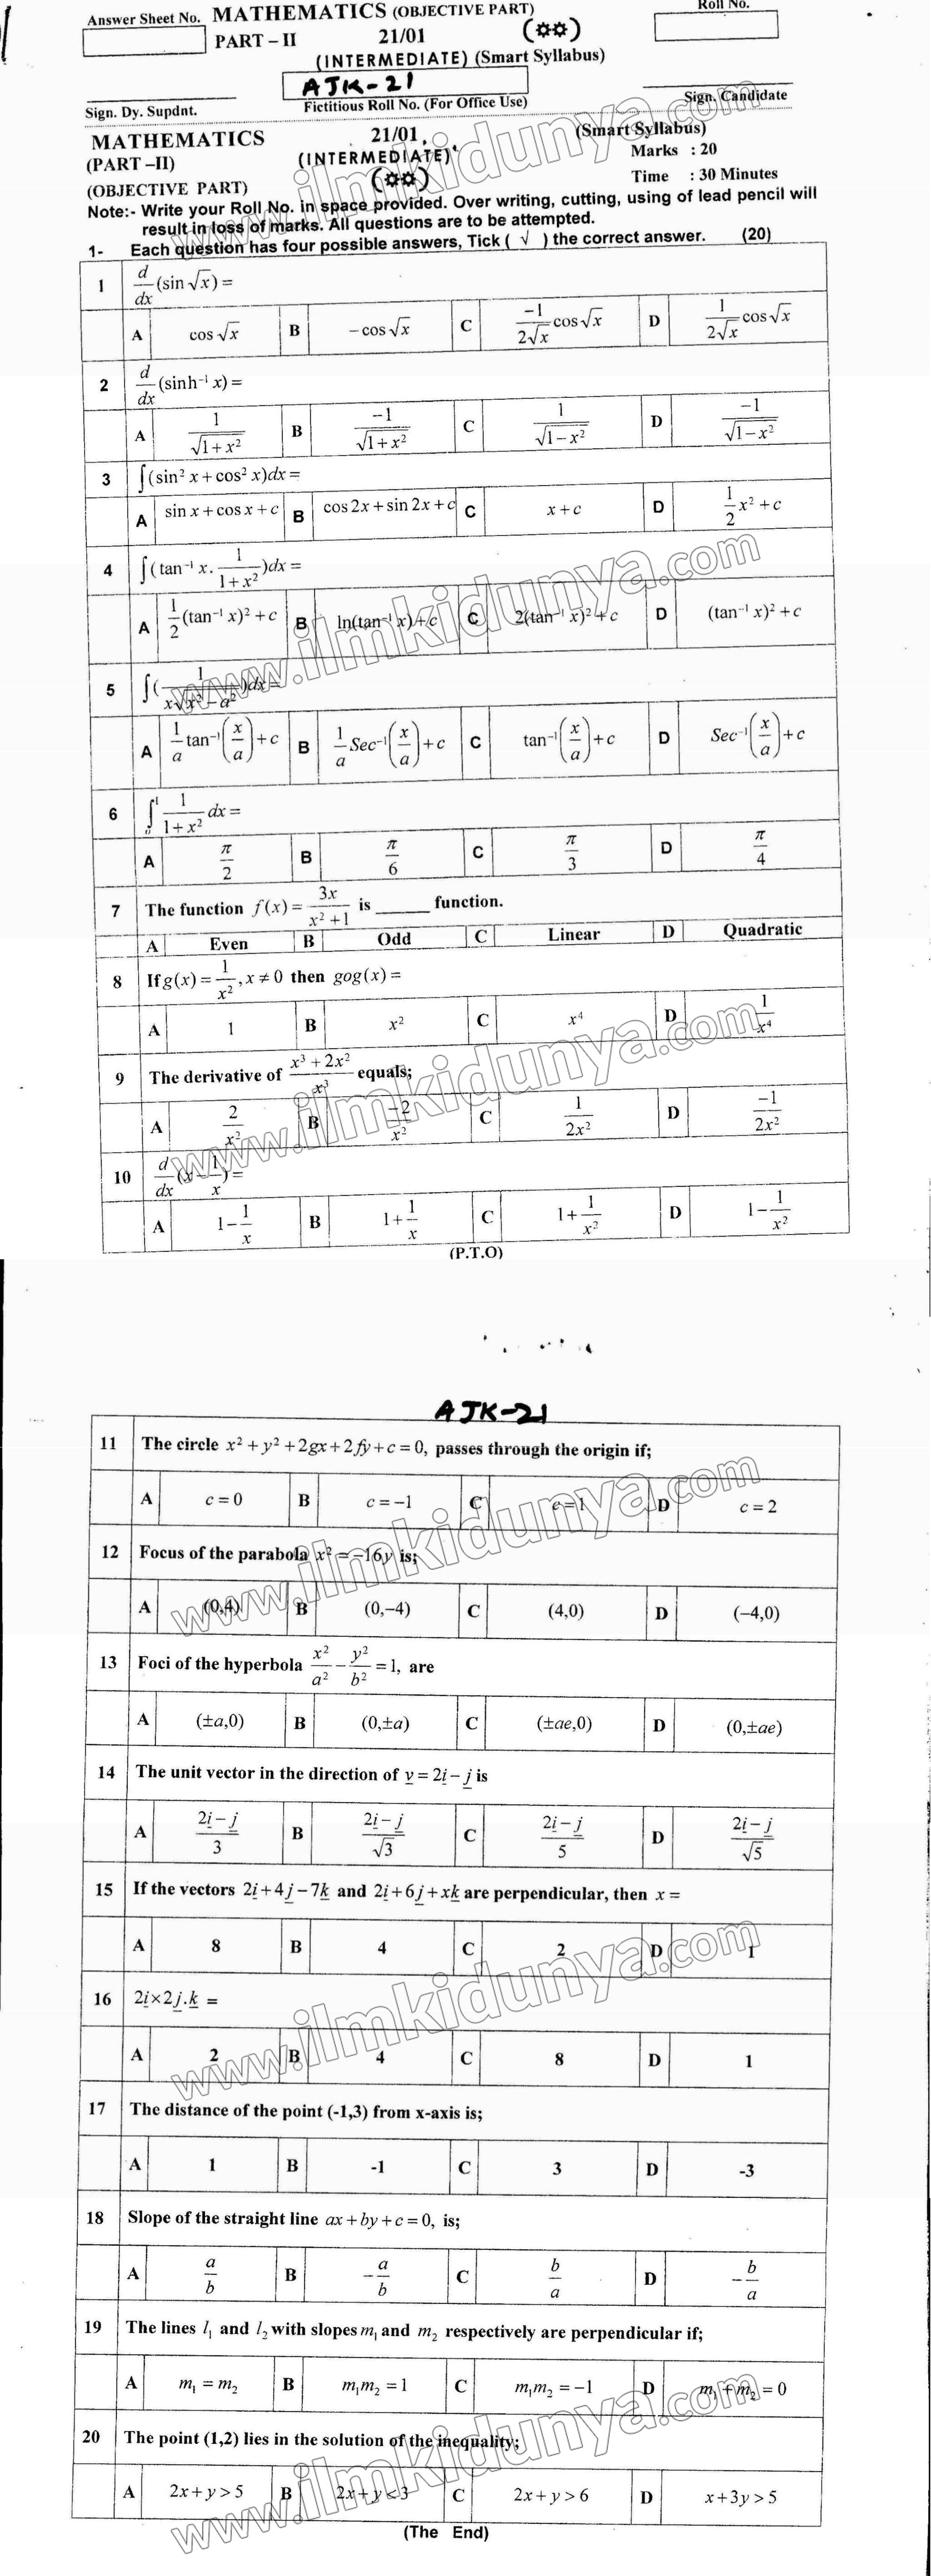 Answer Sheet No. MATHEMATICS (OBJECTIVE PART) Roll No.
PART – II 21/01 (✡✡)
(INTERMEDIATE) (Smart Syllabus)
AJK-21
Sign. Dy. Supdnt. Fictitious Roll No. (For Office Use) Sign. Candidate
MATHEMATICS 21/01 (Smart Syllabus)
(PART –II) (INTERMEDIATE) Marks : 20
(OBJECTIVE PART) (✡✡) Time : 30 Minutes
Note:- Write your Roll No. in space provided. Over writing, cutting, using of lead pencil will
result in loss of marks. All questions are to be attempted.
1- Each question has four possible answers, Tick ( √ ) the correct answer. (20)
1 d/dx (sin √x) =
A cos √x B – cos √x C –1/(2√x) cos √x D 1/(2√x) cos √x
2 d/dx (sinh⁻¹ x) =
A 1/√(1+x²) B –1/√(1+x²) C 1/√(1–x²) D –1/√(1–x²)
3 ∫(sin² x + cos² x)dx =
A sin x + cos x + c B cos 2x + sin 2x + c C x + c D 1/2 x² + c
4 ∫(tan⁻¹ x. 1/(1+x²))dx =
A 1/2 (tan⁻¹ x)² + c B ln(tan⁻¹ x) + c C 2(tan⁻¹ x)² + c D (tan⁻¹ x)² + c
5 ∫(1/(x√(x² – a²)))dx =
A 1/a tan⁻¹(x/a) + c B 1/a Sec⁻¹(x/a) + c C tan⁻¹(x/a) + c D Sec⁻¹(x/a) + c
6 ∫₀¹ 1/(1+x²) dx =
A π/2 B π/6 C π/3 D π/4
7 The function f(x) = 3x/(x² +1) is ______ function.
A Even B Odd C Linear D Quadratic
8 If g(x) = 1/x², x ≠ 0 then gog(x) =
A 1 B x² C x⁴ D 1/x⁴
9 The derivative of (x³ + 2x²)/x³ equals;
A 2/x² B –2/x² C 1/2x² D –1/2x²
10 d/dx (x – 1/x) =
A 1 – 1/x B 1 + 1/x C 1 + 1/x² D 1 – 1/x²
(P.T.O)
AJK-21
11 The circle x² + y² + 2gx + 2fy + c = 0, passes through the origin if;
A c = 0 B c = –1 C c = 1 D c = 2
12 Focus of the parabola x² = –16y is;
A (0,4) B (0,–4) C (4,0) D (–4,0)
13 Foci of the hyperbola x²/a² – y²/b² = 1, are
A (±a,0) B (0,±a) C (±ae,0) D (0,±ae)
14 The unit vector in the direction of v = 2i – j is
A (2i – j)/3 B (2i – j)/√3 C (2i – j)/5 D (2i – j)/√5
15 If the vectors 2i + 4j – 7k and 2i + 6j + xk are perpendicular, then x =
A 8 B 4 C 2 D 1
16 2i×2j.k =
A 2 B 4 C 8 D 1
17 The distance of the point (-1,3) from x-axis is;
A 1 B -1 C 3 D -3
18 Slope of the straight line ax + by + c = 0, is;
A a/b B –a/b C b/a D –b/a
19 The lines l₁ and l₂ with slopes m₁ and m₂ respectively are perpendicular if;
A m₁ = m₂ B m₁m₂ = 1 C m₁m₂ = –1 D m₁ + m₂ = 0
20 The point (1,2) lies in the solution of the inequality;
A 2x + y > 5 B 2x + y < 3 C 2x + y > 6 D x + 3y > 5
(The End)
www.ilmkidunya.com
www.ilmkidunya.com
www.ilmkidunya.com
www.ilmkidunya.com
www.ilmkidunya.com
www.ilmkidunya.com